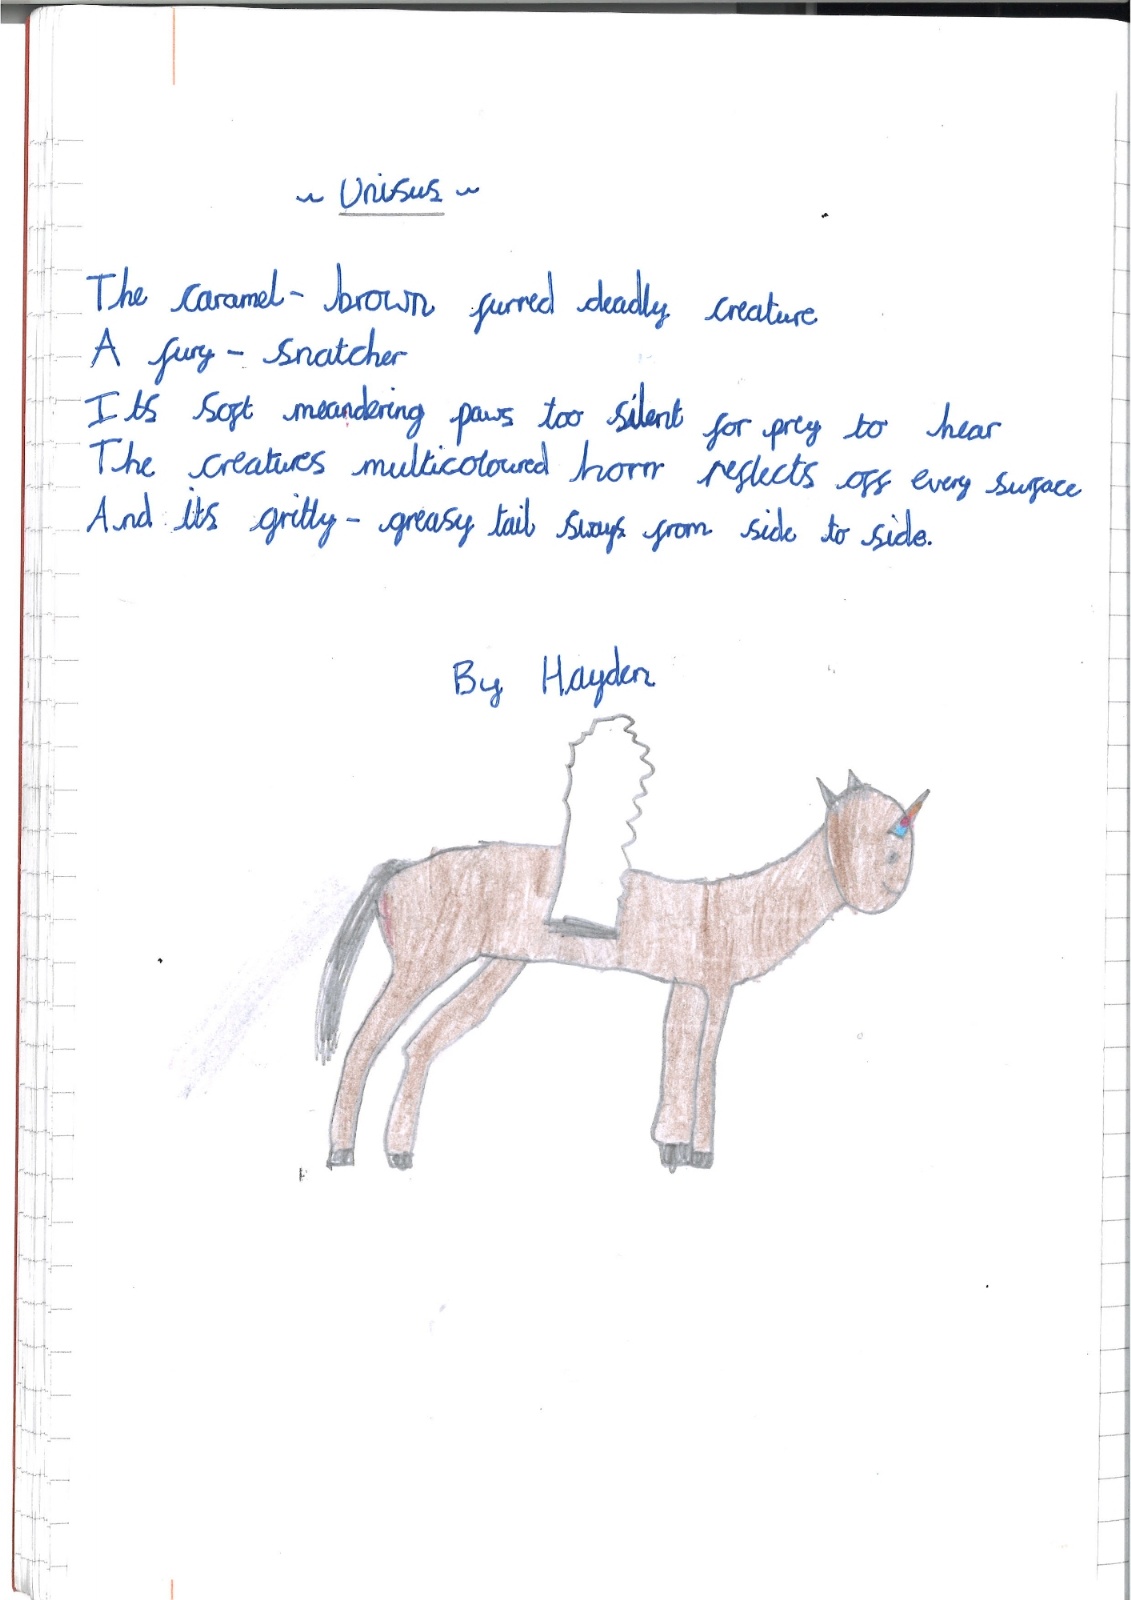 ~ Unisus ~
The caramel- brown furred deadly creature
A fury - snatcher
Its soft meandering paws too silent for prey to hear
The creatures multicoloured horn reflects off every surface
And its gritty - greasy tail sways from side to side.
By Hayden